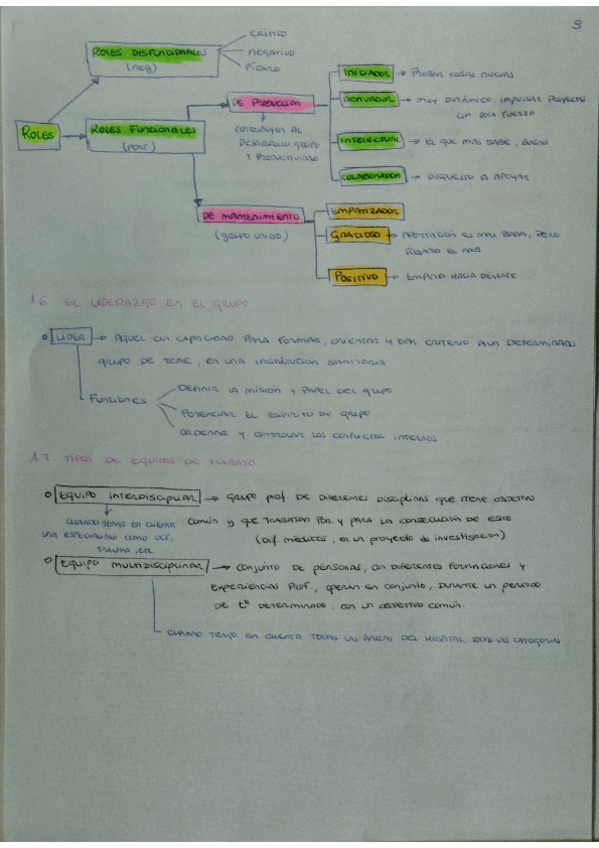 3
CRÍTICO
ROLES DISFUNCIONALES
(NEG)
NEGATIVO
PÍCARO
INICIADOR → PROBAR COSAS NUEVAS
DE PRODUCCIÓN
ACTIVADOR → MUY DINÁMICO, IMPULSAR PROYECTO
CON POCA FUERZA
ROLES
ROLES FUNCIONALES
(POSI)
CONTRIBUYEN AL
DESARROLLO GRUPO
Y PRODUCTIVIDAD
INTELECTUAL → EL QUE MÁS SABE, BUENO
COLABORADOR → DISPUESTO A APOYAR
DE MANTENIMIENTO
(GRUPO UNIDO)
EMPATIZADOR
GRACIOSO → APORTACIÓN ES MUY BAJA, PERO
RELAJA EL
POSITIVO → EMPUJA HACIA DELANTE
1.6 EL LIDERAZGO EN EL GRUPO
LÍDER → AQUEL CON CAPACIDAD PARA FORMAR, ORIENTAR Y DAR CRITERIO A UN DETERMINADO
GRUPO DE TCAE, EN UNA INSTITUCIÓN SANITARIA
FUNCIONES
DEFINIR LA MISIÓN Y PAPEL DEL GRUPO
POTENCIAR EL ESPÍRITU DE GRUPO
ORDENAR Y CONTROLAR LOS CONFLICTOS INTERNOS
1.7. TIPOS DE EQUIPOS DE TRABAJO
EQUIPO INTERDISCIPLINAR → GRUPO prof DE DIFERENTES DISCIPLINAS QUE TIENE OBJETIVO
COMÚN Y QUE TRABAJAN POR Y PARA LA CONSECUCIÓN DE ESTE
(Dif. médicos, en un proyecto de investigación)
CUANDO TENGO EN CUENTA
UNA ESPECIALIDAD COMO UCI,
TRAUMA, ETC.
EQUIPO MULTIDISCIPLINAR → CONJUNTO DE PERSONAS, CON DIFERENTES FORMACIONES Y
EXPERIENCIAS PROF., OPERAN EN CONJUNTO, DURANTE UN PERIODO
DE tº DETERMINADO, CON UN OBJETIVO COMÚN.
CUANDO TENGO EN CUENTA TODAS LAS ÁREAS DEL HOSPITAL, TODAS LAS CATEGORÍAS